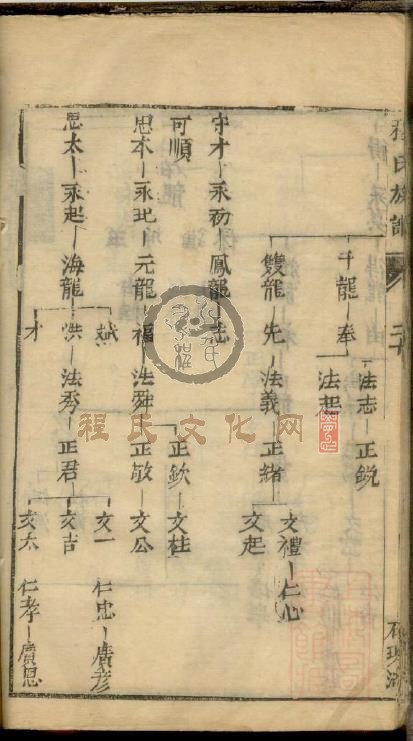 程氏族譜 二十
千龍 奉 法志 正銳
法起
雙龍 先 法義 正緒 文禮 仁心
文起
守才 永初 鳳龍 志
可順
正欽 文柱
思本 永玘 元龍 福 法舜 正敏 文公
思太 永起 海龍
洪 法秀 正君 文一 仁忠 廣彥
文吉
才
文太 仁孝 廣恩
程氏文化网